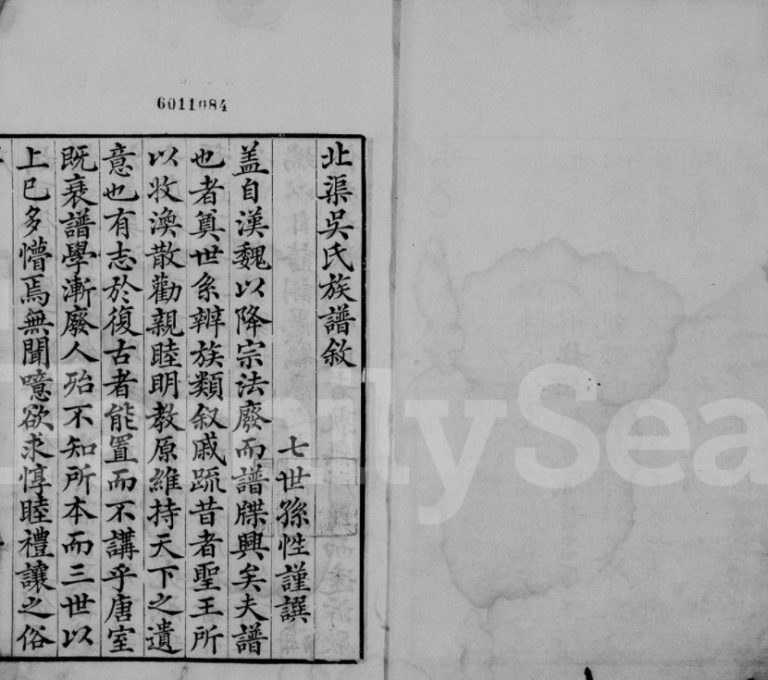 6011084
北渠吳氏族譜敘
七世孫性謹譔
盖自漢魏以降宗法廢而譜牒興矣夫譜
也者奠世系辨族類叙戚疏昔者聖王所
以收渙散勸親睦明教原維持天下之遺
意也有志於復古者能置而不講乎唐室
既衰譜學漸廢人殆不知所本而三世以
上已多懵焉無聞噫欲求惇睦禮讓之俗
lySea